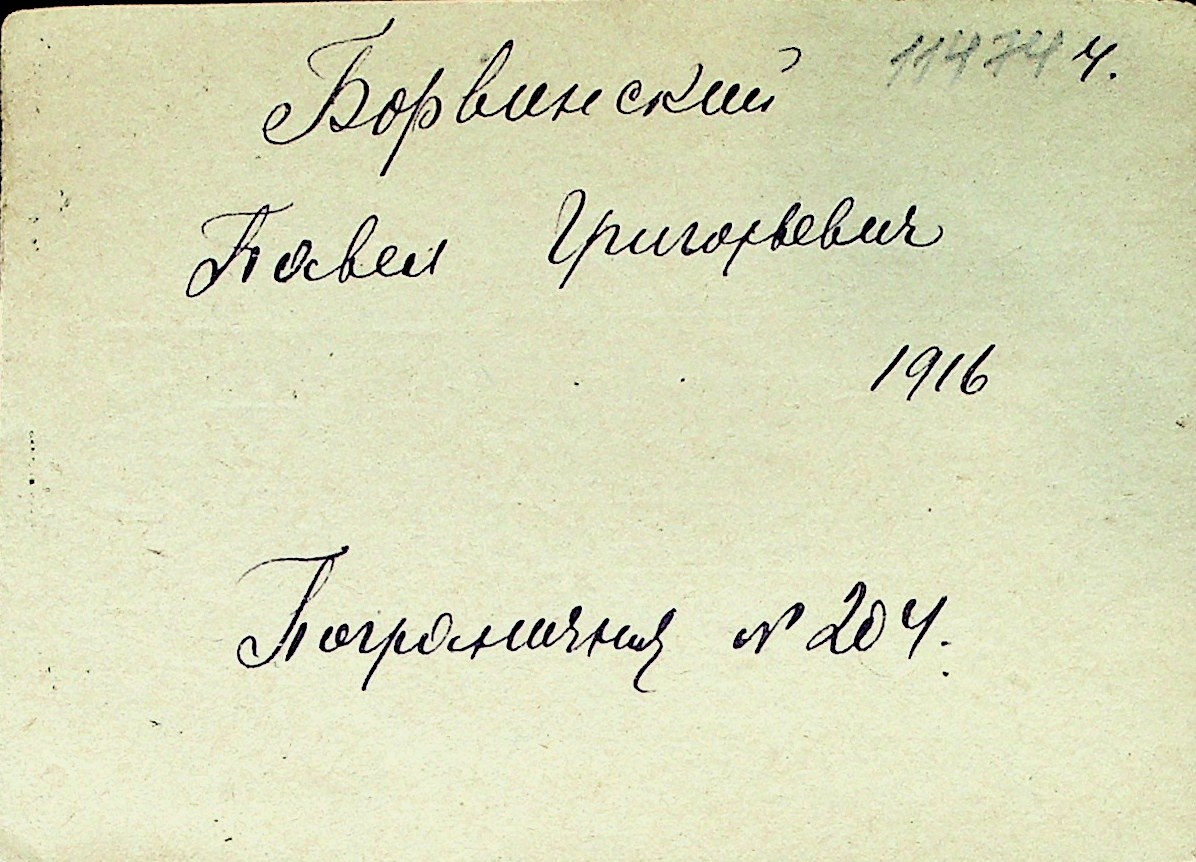 11474 ч.
Борвинский
Павел Григорьевич
1916
Пограничная № 204.